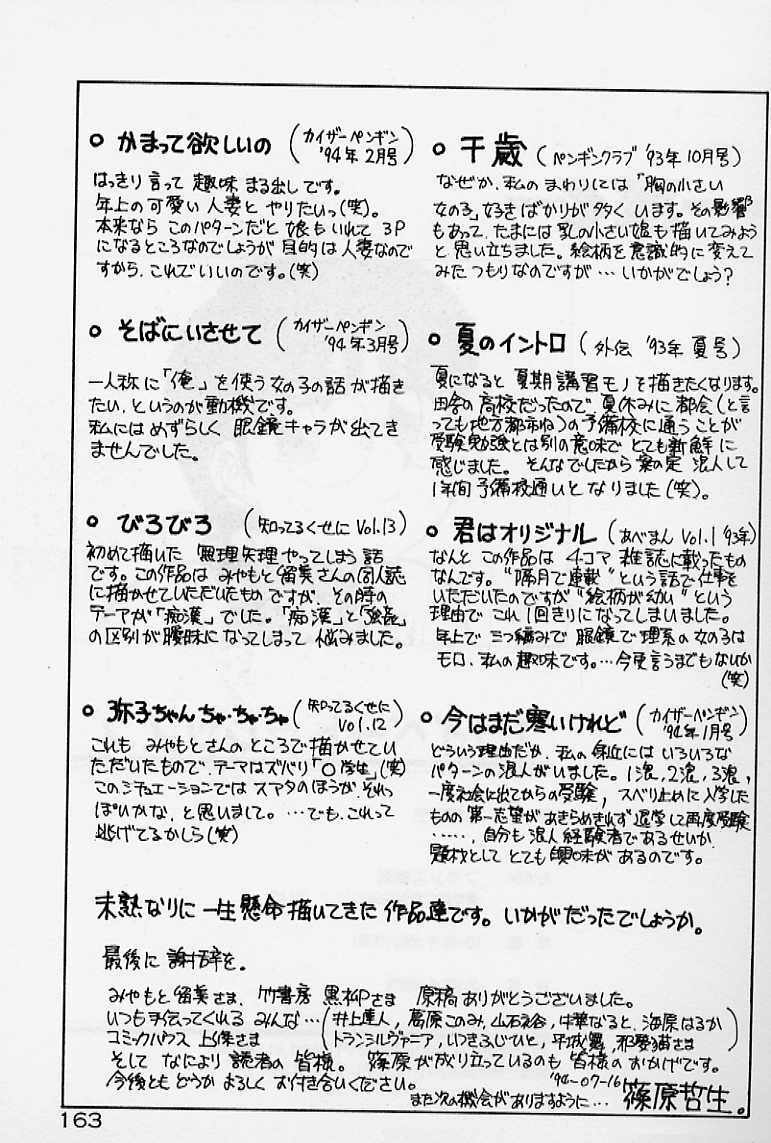 ○ かまって欲しいの (カイザーペンギン
'94年2月号)
はっきり言って 趣味 まる出しです。
年上の可愛い人妻と やりたいっ(笑)。
本来なら このパターンだと 娘もいれて 3P
になるところなのでしょうが 目的は人妻なので
すから、これでいいのです。(笑)
○ そばにいさせて (カイザーペンギン
'94年3月号)
一人称に「俺」を使う女の子の話が描き
たい、というのが動機です。
私にはめずらしく 眼鏡キャラが出てき
ませんでした。
○ びろびろ (知ってるくせに Vol.13)
初めて描いた 無理矢理やってしまう話
です。この作品は みやもと留美さんの同人誌
に描かせていただいたものですが、その時の
テーマが「痴漢」でした。「痴漢」と「強姦」
の区別が曖昧になってしまって 悩みました。
○ 弥子ちゃん ちゃ・ちゃ・ちゃ (知ってるくせに
Vol.12)
これも みやもとさんのところで描かせてい
ただいたもので、テーマはズバリ「○学生」(笑)
このシチュエーションでは スマタのほうが、それっ
ぽいかな、と思いまして。…でも、これって
逃げてるかしら(笑)
○ 千歳 (ペンギンクラブ '93年10月号)
なぜか、私のまわりには「胸の小さい
女の子」好きばかりが多く います。その影響
もあって、たまには乳の小さい娘も描いてみよう
と思い立ちました。絵柄を意識的に変えて
みたつもりなのですが…いかがでしょう?
○ 夏のイントロ (外伝 '93年 夏号)
夏になると 夏期講習モノを描きたくなります。
田舎の高校だったので 夏休みに都会(と言
っても地方都市ね)の予備校に通うことが
受験勉強とは別の意味で とても新鮮に
感じました。そんなでしたから 案の定 浪人して
1年間予備校通いと なりました(笑)。
○ 君はオリジナル (あべまん Vol.1 93年)
なんと この作品は 4コマ 雑誌に載ったもの
なんです。"隔月で連載"という話で仕事を
いただいたのですが"絵柄が幼い"という
理由で これ1回きりになってしまいました。
年上で 三つ編みで 眼鏡で 理系の女の子は
モロ、私の趣味です。…今更言うまでもないか
(笑)
○ 今はまだ寒いけれど (カイザーペンギン
'94年1月号)
どういう理由だか、私の身近には いろいろな
パターンの浪人がいました。1浪、2浪、3浪、
一度社会に出てからの受験、スベリ止めに入学した
ものの 第一志望があきらめきれず 退学して再度受験
……、自分も浪人経験者であるせいか
題材として とても興味があるのです。
未熟なりに 一生懸命描いてきた 作品達です。いかがだったでしょうか。
最後に 謝辞を。
みやもと留美さま、竹書房 黒柳さま 原稿ありがとうございました。
いつも手伝ってくれる みんな…(井上達人, 葛原このみ, 中華なると, 海原はるか
トランシルヴァニア, いつきふじひと, 平城舞, さま)
コミックハウス 上條さま
そして なにより 読者の皆様。 篠原が成り立っているのも皆様のおかげです。
今後ともどうか よろしく お付き合いください。 '94-07-16
また次の機会がありますように… 篠原哲生。
163